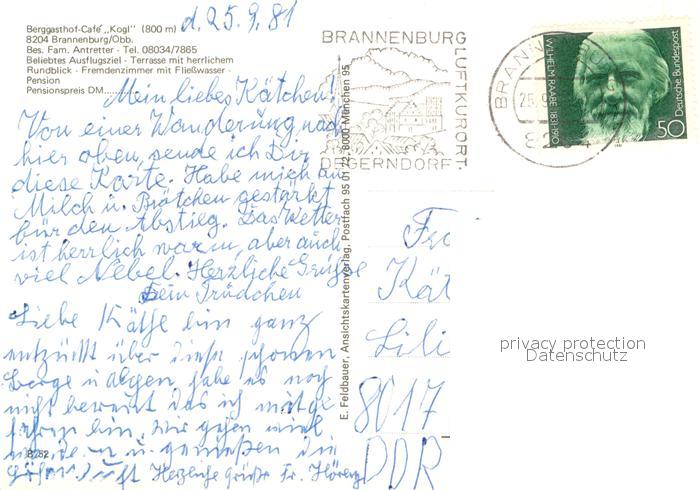 d. 25.9.81
Berggasthof-Café „Kogl" (800 m)
8204 Brannenburg/Obb.
Bes. Fam. Antretter - Tel. 08034/7865
Beliebtes Ausflugsziel - Terrasse mit herrlichem
Rundblick - Fremdenzimmer mit Fließwasser -
Pension
Pensionspreis DM
Mein liebes Kätchen!
Von einer Wanderung nach
hier oben, sende ich Dir
diese Karte. Habe mich an
Milch u. Brötchen gestärkt
für den Abstieg. Das Wetter
ist herrlich warm, aber auch
viel Nebel. Herzliche Grüße
Dein Trudchen
Liebe Käthe bin ganz
entzückt über diese schönen
Berge u Alpen habe es noch
nicht bereut das ich mitge
fahren bin, wir gehen viel
wandern u genießen die
Herzliche Grüße Fr.
B 82
E. Feldbauer, Ansichtskartenverlag, Postfach 95 01 72, 8000 München 95
BRANNENBURG
LUFTKURORT
DEGERNDORF
BRANN
25.9
820 4
WILHELM RAABE 1831-1910
Deutsche Bundespost
50
Kät
Lili
8017
DDR
privacy protection
Datenschutz